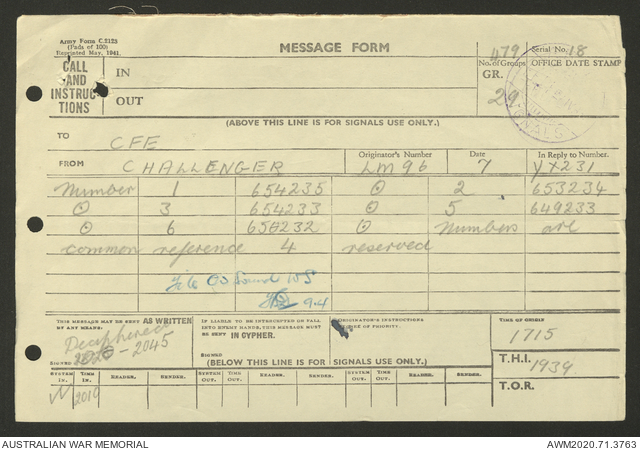 Army Form C.2128
(Pads of 100)
Reprinted May, 1941.
MESSAGE FORM
479 Serial No. 18
CALL
AND
INSTRUC
TIONS
IN
OUT
No. of Groups
GR.
29
OFFICE DATE STAMP
SIGNALS
(ABOVE THIS LINE IS FOR SIGNALS USE ONLY.)
TO CFE
FROM CHALLENGER
Originator's Number LM96
Date 7
In Reply to Number. YX231
Number 1 654235 ⊙ 2 653234
⊙ 3 654233 ⊙ 5 649233
⊙ 6 232 ⊙ Numbers are
common reference 4 reserved
File
9.4
THIS MESSAGE MAY BE SENT AS WRITTEN
BY ANY MEANS.
Decyphered
2045
SIGNED
IF LIABLE TO BE INTERCEPTED OR FALL
INTO ENEMY HANDS, THIS MESSAGE MUST
BE SENT IN CYPHER.
SIGNED
ORIGINATOR'S INSTRUCTIONS
DEGREE OF PRIORITY.
TIME OF ORIGIN
1715
T.H.I. 1939
T.O.R.
(BELOW THIS LINE IS FOR SIGNALS USE ONLY.)
SYSTEM IN. TIME IN. READER. SENDER. SYSTEM OUT. TIME OUT. READER. SENDER. SYSTEM OUT. TIME OUT. READER. SENDER.
2010
AUSTRALIAN WAR MEMORIAL
AWM2020.71.3763